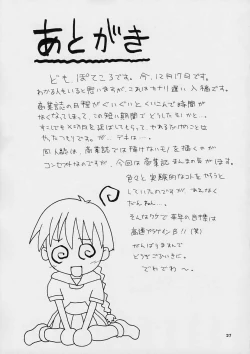 あとがき
ども ぽてころです。今、12月17日です。
わかる人もいると思いますが、これはかナリ遅い入稿です。
商業誌の日程がぐいぐいとくいこんで時間が
なくなってしまって、この短い期間でどうしたものかと…、
すこしでも〆切日を延ばしてもらって、やれるだけのことは
やったつもりです。が、デキは…、
同人誌は、商業誌では描けないモノを描くのが
コンセプトなのですが、今回は商業誌まんまの気がする。
色々と実験的なコトをやろうと
していたのですが、あえなく
だんねん…、
そんなワケで来年の目標は
高速プラゲイン
がんばりますんで
どうぞごひいきに。
でわでわ〜。
27